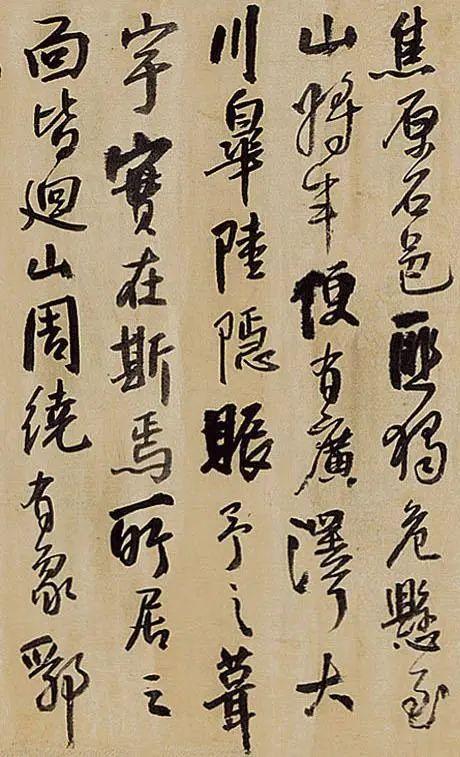 焦原石邑匪獨危懸至
山將半便有廣澤大
川皋陸隱賑予之葺
宇實在斯焉所居之
面皆迴山周繞有象郛